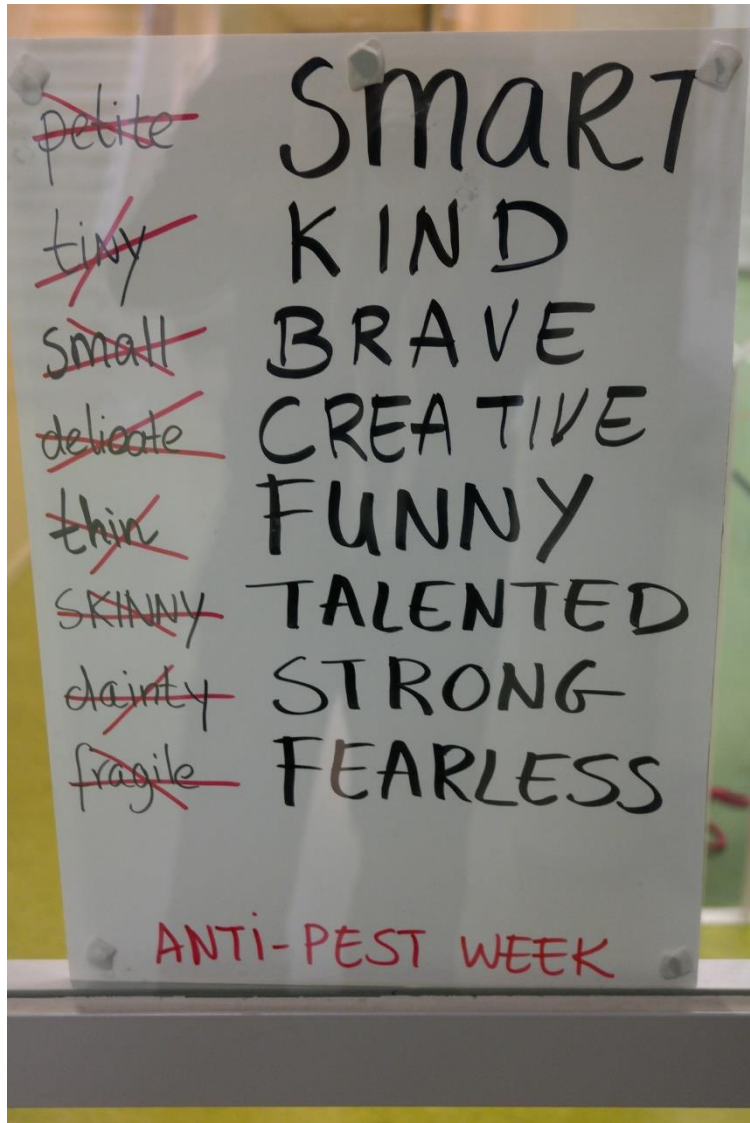 petite SMART
tiNy KIND
small BRAVE
delicate CREATIVE
thin FUNNY
SKINNY TALENTED
dainty STRONG
fragile FEARLESS
ANTi-PEST WEEK